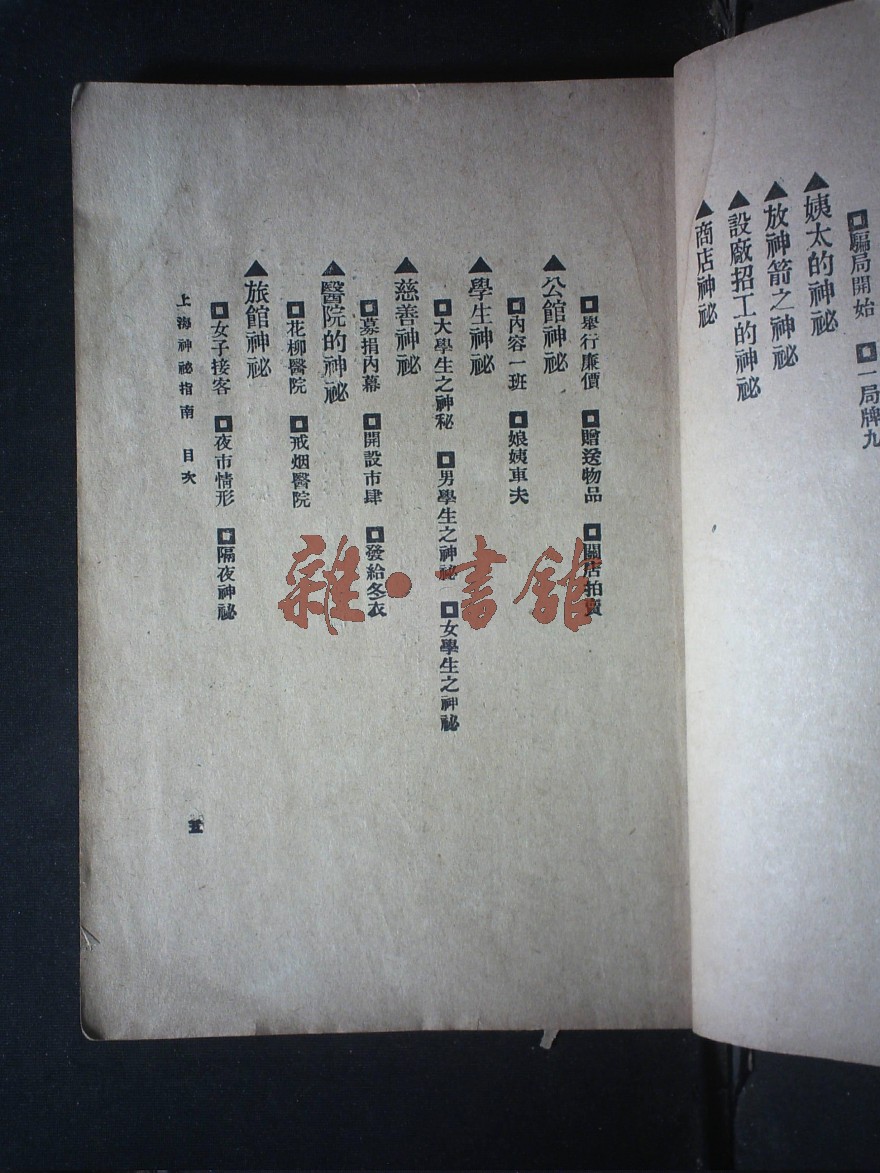 ◘騙局開始 ◘一局牌九
▲姨太的神祕
▲放神箭之神祕
▲設廠招工的神祕
▲商店神祕
◘舉行廉價 ◘贈送物品 ◘關店拍賣
▲公館神祕
◘內容一班 ◘娘姨車夫
▲學生神祕
◘大學生之神秘 ◘男學生之神祕 ◘女學生之神祕
▲慈善神祕
◘募捐內幕 ◘開設市肆 ◘發給冬衣
▲醫院的神祕
◘花柳醫院 ◘戒烟醫院
▲旅館神祕
◘女子接客 ◘夜市情形 ◘隔夜神祕
上海神祕指南 目次
五
雜·書館